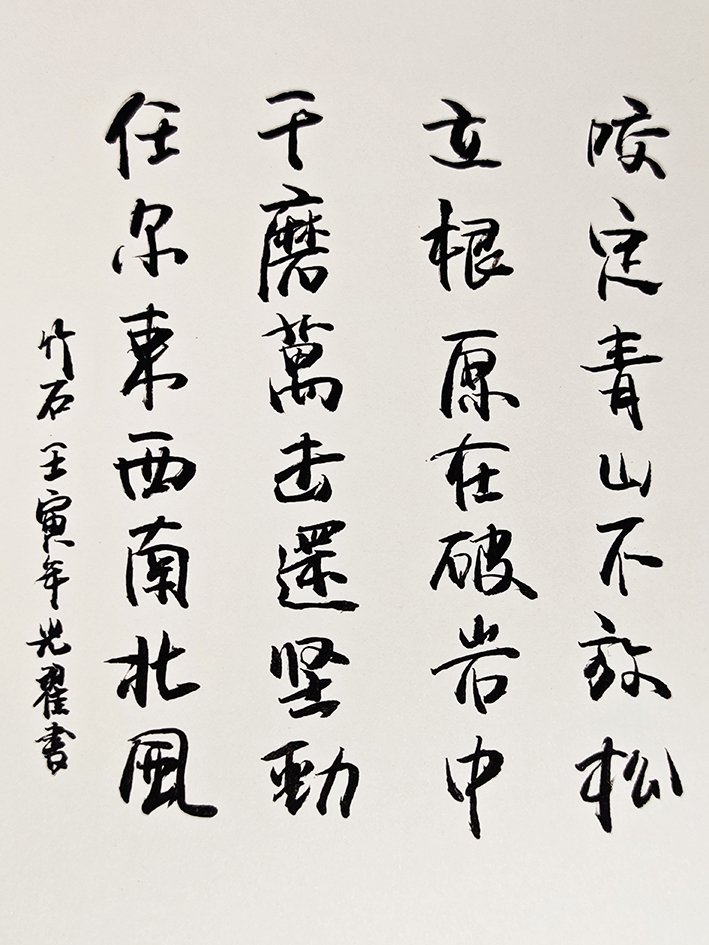 咬定青山不放松
立根原在破岩中
千磨萬击還坚勁
任尔東西南北風
竹石 壬寅年 光翟書